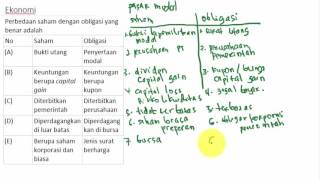 Ekonomi
Perbedaan saham dengan obligasi yang
benar adalah
No Saham Obligasi
(A) Bukti utang Penyertaan
modal
(B) Keuntungan Keuntungan
berupa capital berupa kupon
gain
(C) Diterbitkan Diterbitkan
pemerintah perusahaan
(D) Diperdagangkan Diperdagangkan
di luar batas di bursa
(E) Berupa saham Jenis surat
korporasi dan berharga
biasa
pasar modal
saham obligasi
kepemilikan 1. surat utang
modal
2. perusahaan PT 2. perusahaan
pemerintah
3. dividen 3. kupon / bunga
capital gain capital gain
4. capital loss 4. gagal bayar
likuiditas
5. tidak terbatas 5. terbatas
6. saham biasa 6. obligasi korporasi
preferen pemerintah
7. bursa